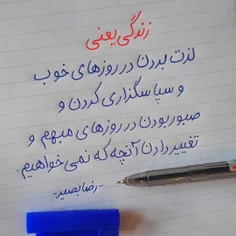 زندگی یعنی
لذت بردن در روزهای خوب
و سپاسگزاری کردن و
صبور بودن در روزهای مبهم و
تغییر دادن آنچه که نمی خواهیم.
-رضا بصیر-